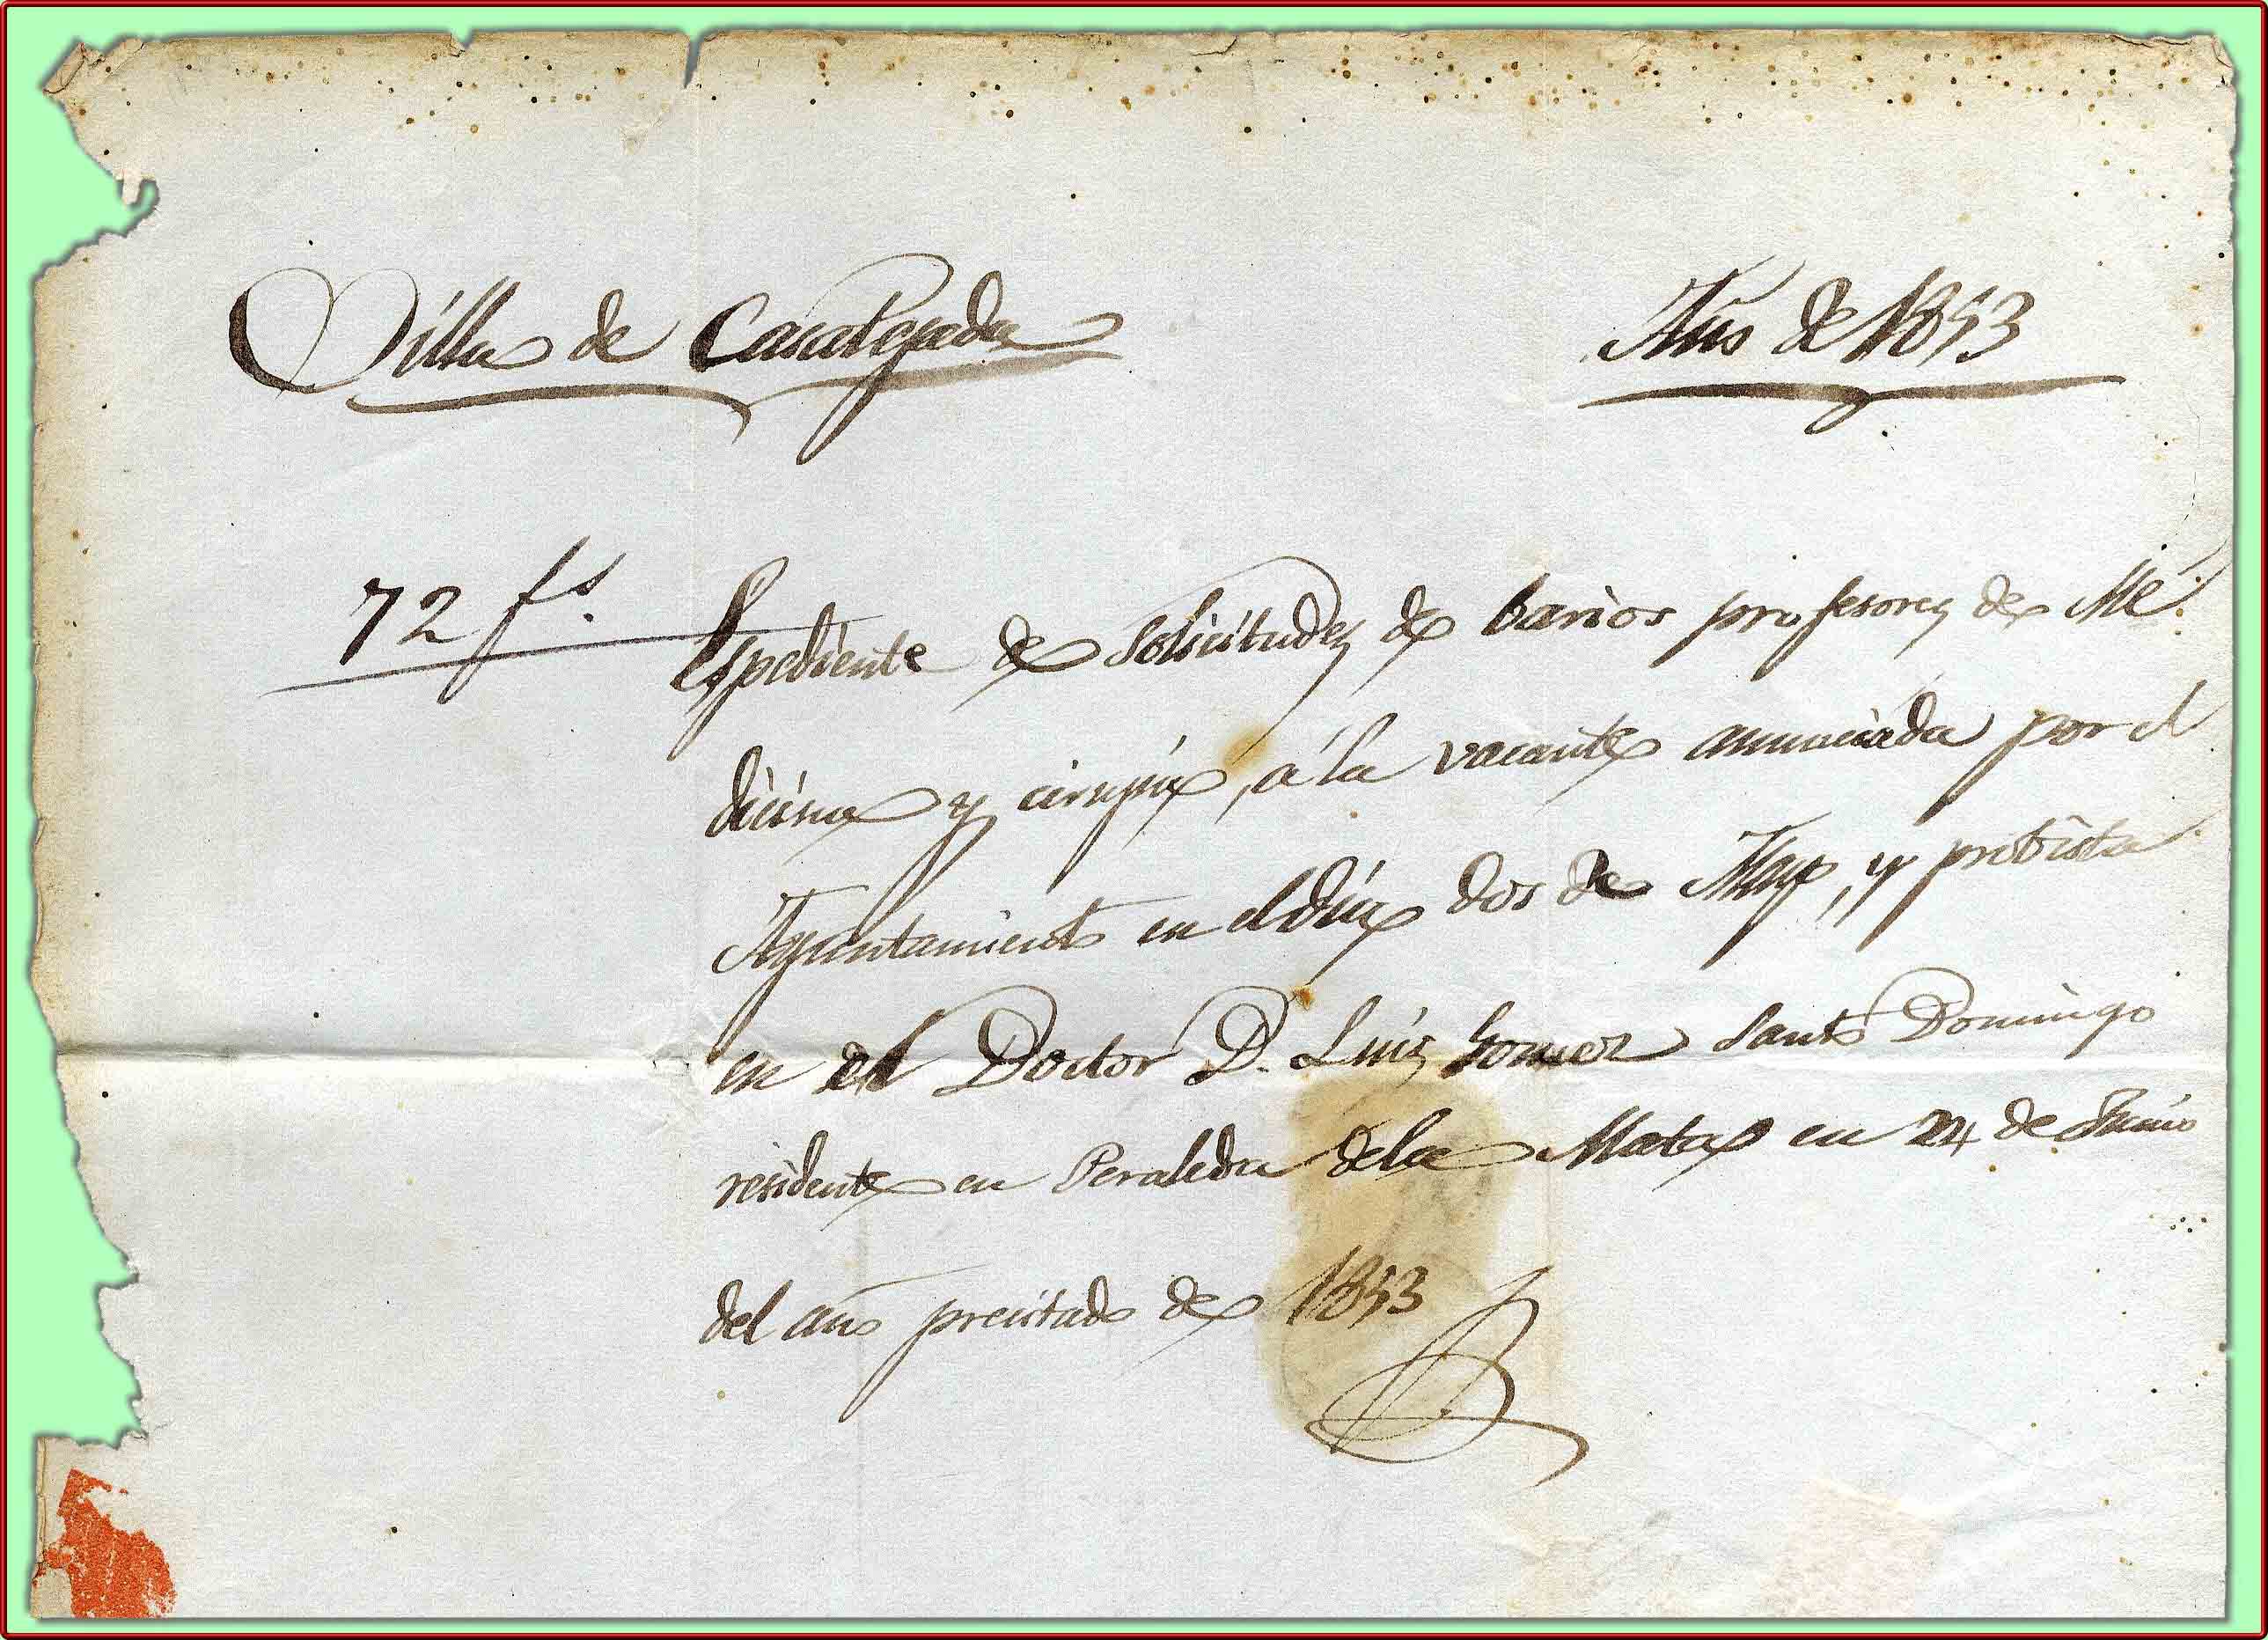 Villa de CasaTejada
Año de 1853
72 fs.
Espediente de Solicitudes de barios profesores de Me
dicina y cirujía, á la vacante anunciada por el
Ayuntamiento en el día dos de Mayo, y probista
en el Doctor D. Luis Gomez Santo Domingo
residente en Peraleda de la Mata en 24 de Junio
del año precitado de 1853